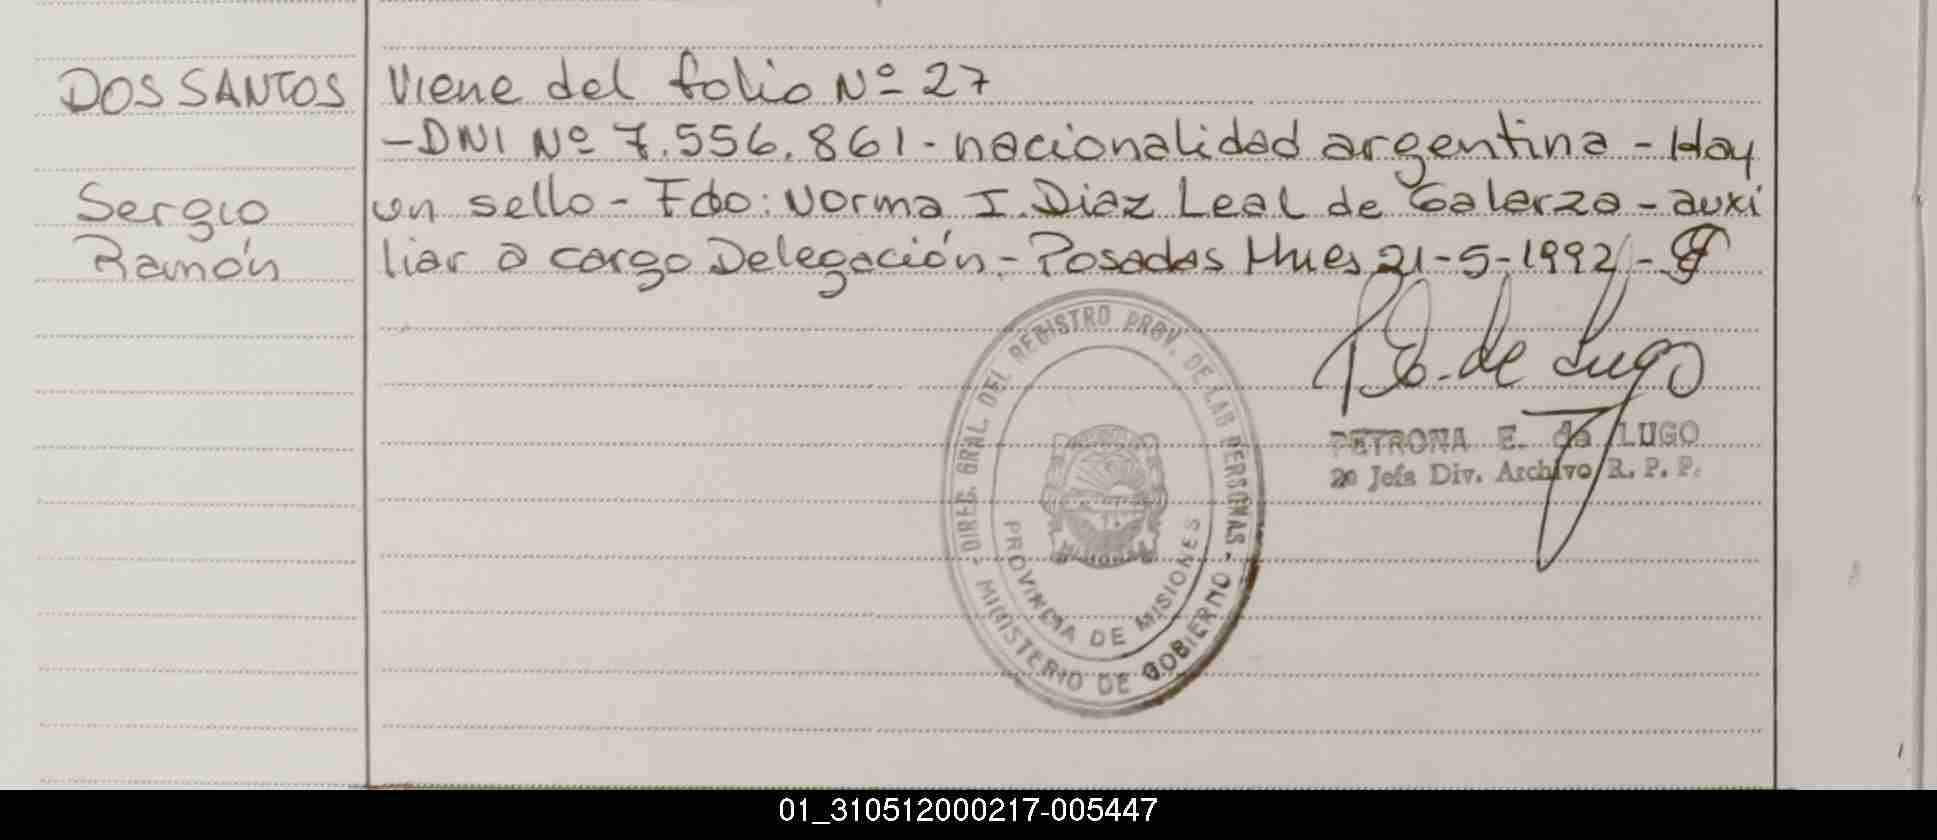 DOS SANTOS
Sergio
Ramón
Viene del folio Nº 27
-DNI Nº 7.556.861 - nacionalidad argentina - Hay
un sello - Fdo: Norma I. Diaz Leal de Galarza - auxi
liar a cargo Delegación - Posadas Mnes 21-5-1992 -
P.E. de Lugo
PETRONA E. de LUGO
2o Jefa Div. Archivo R. P. P.
- DIREC. GRAL. DEL REGISTRO PROV. DE LAS PERSONAS -
MINISTERIO DE GOBIERNO
PROVINCIA DE MISIONES
01_310512000217-005447